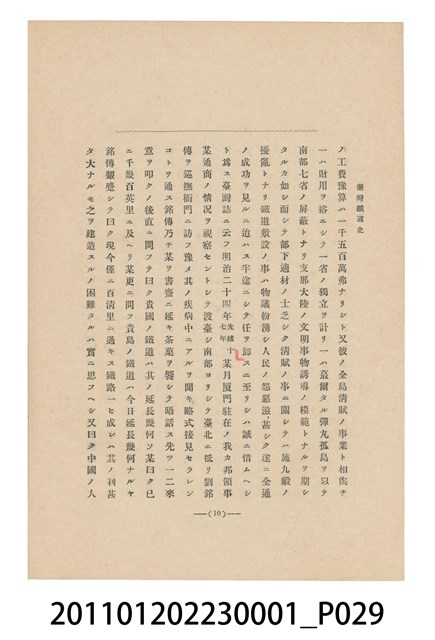 臺灣鐵道史
ノ工費豫算ハ一千五百萬弗ナリシト又彼ノ全島清賦ノ事業ト相俟チ
一ハ財用ヲ裕ニシテ一省ノ獨立ヲ計リ一ハ叢爾タル彈丸孤島ヲ以テ
南部七省ノ屛蔽トナリ支那大陸ノ文明事物誘導ノ模範トナルヲ期シ
タルカ如シ而シテ部下適材ノ士乏シク清賦ノ事ニ關シテハ施九緞ノ
擾亂トナリ鐵道敷設ノ事ハ物議紛湧シ人民ノ怨惡滋甚シク遂ニ全通
ノ成功ヲ見ルニ迨ハス半途ニシテ任ヲ卸スニ至リシハ誠ニ惜ムヘシ
ト爲ス臺灣誌ニ云フ明治二十四年光緒十七年某月厦門駐在ノ我カ邦領事
某通商ノ情況ヲ視察セントシテ渡臺シ南部ヨリシテ臺北ニ抵リ劉銘
傳ヲ巡撫衙門ニ訪フ豫メ其ノ疾病中ニアルヲ聞キ略式接見セラレン
コトヲ通ス銘傳乃チ某ヲ書齋ニ延キ茶菓ヲ饗シテ晤話ス先ツ一二來
意ヲ叩クノ後直ニ問フテ曰ク貴國ノ鐵道ハ其ノ延長幾何ソ某曰ク已
ニ千幾百英里ニ及ヘリ某更ニ問フ貴島ノ鐵道ハ今日延長幾何ナルヤ
銘傳顰蹙シテ曰ク現今僅ニ百清里ニ過キス鐵路一ヒ成レハ其ノ利甚
タ大ナルモ之ヲ建造スルノ困難タルハ實ニ思フヘシ又曰ク中國ノ人
—(10)—
201101202230001_P029